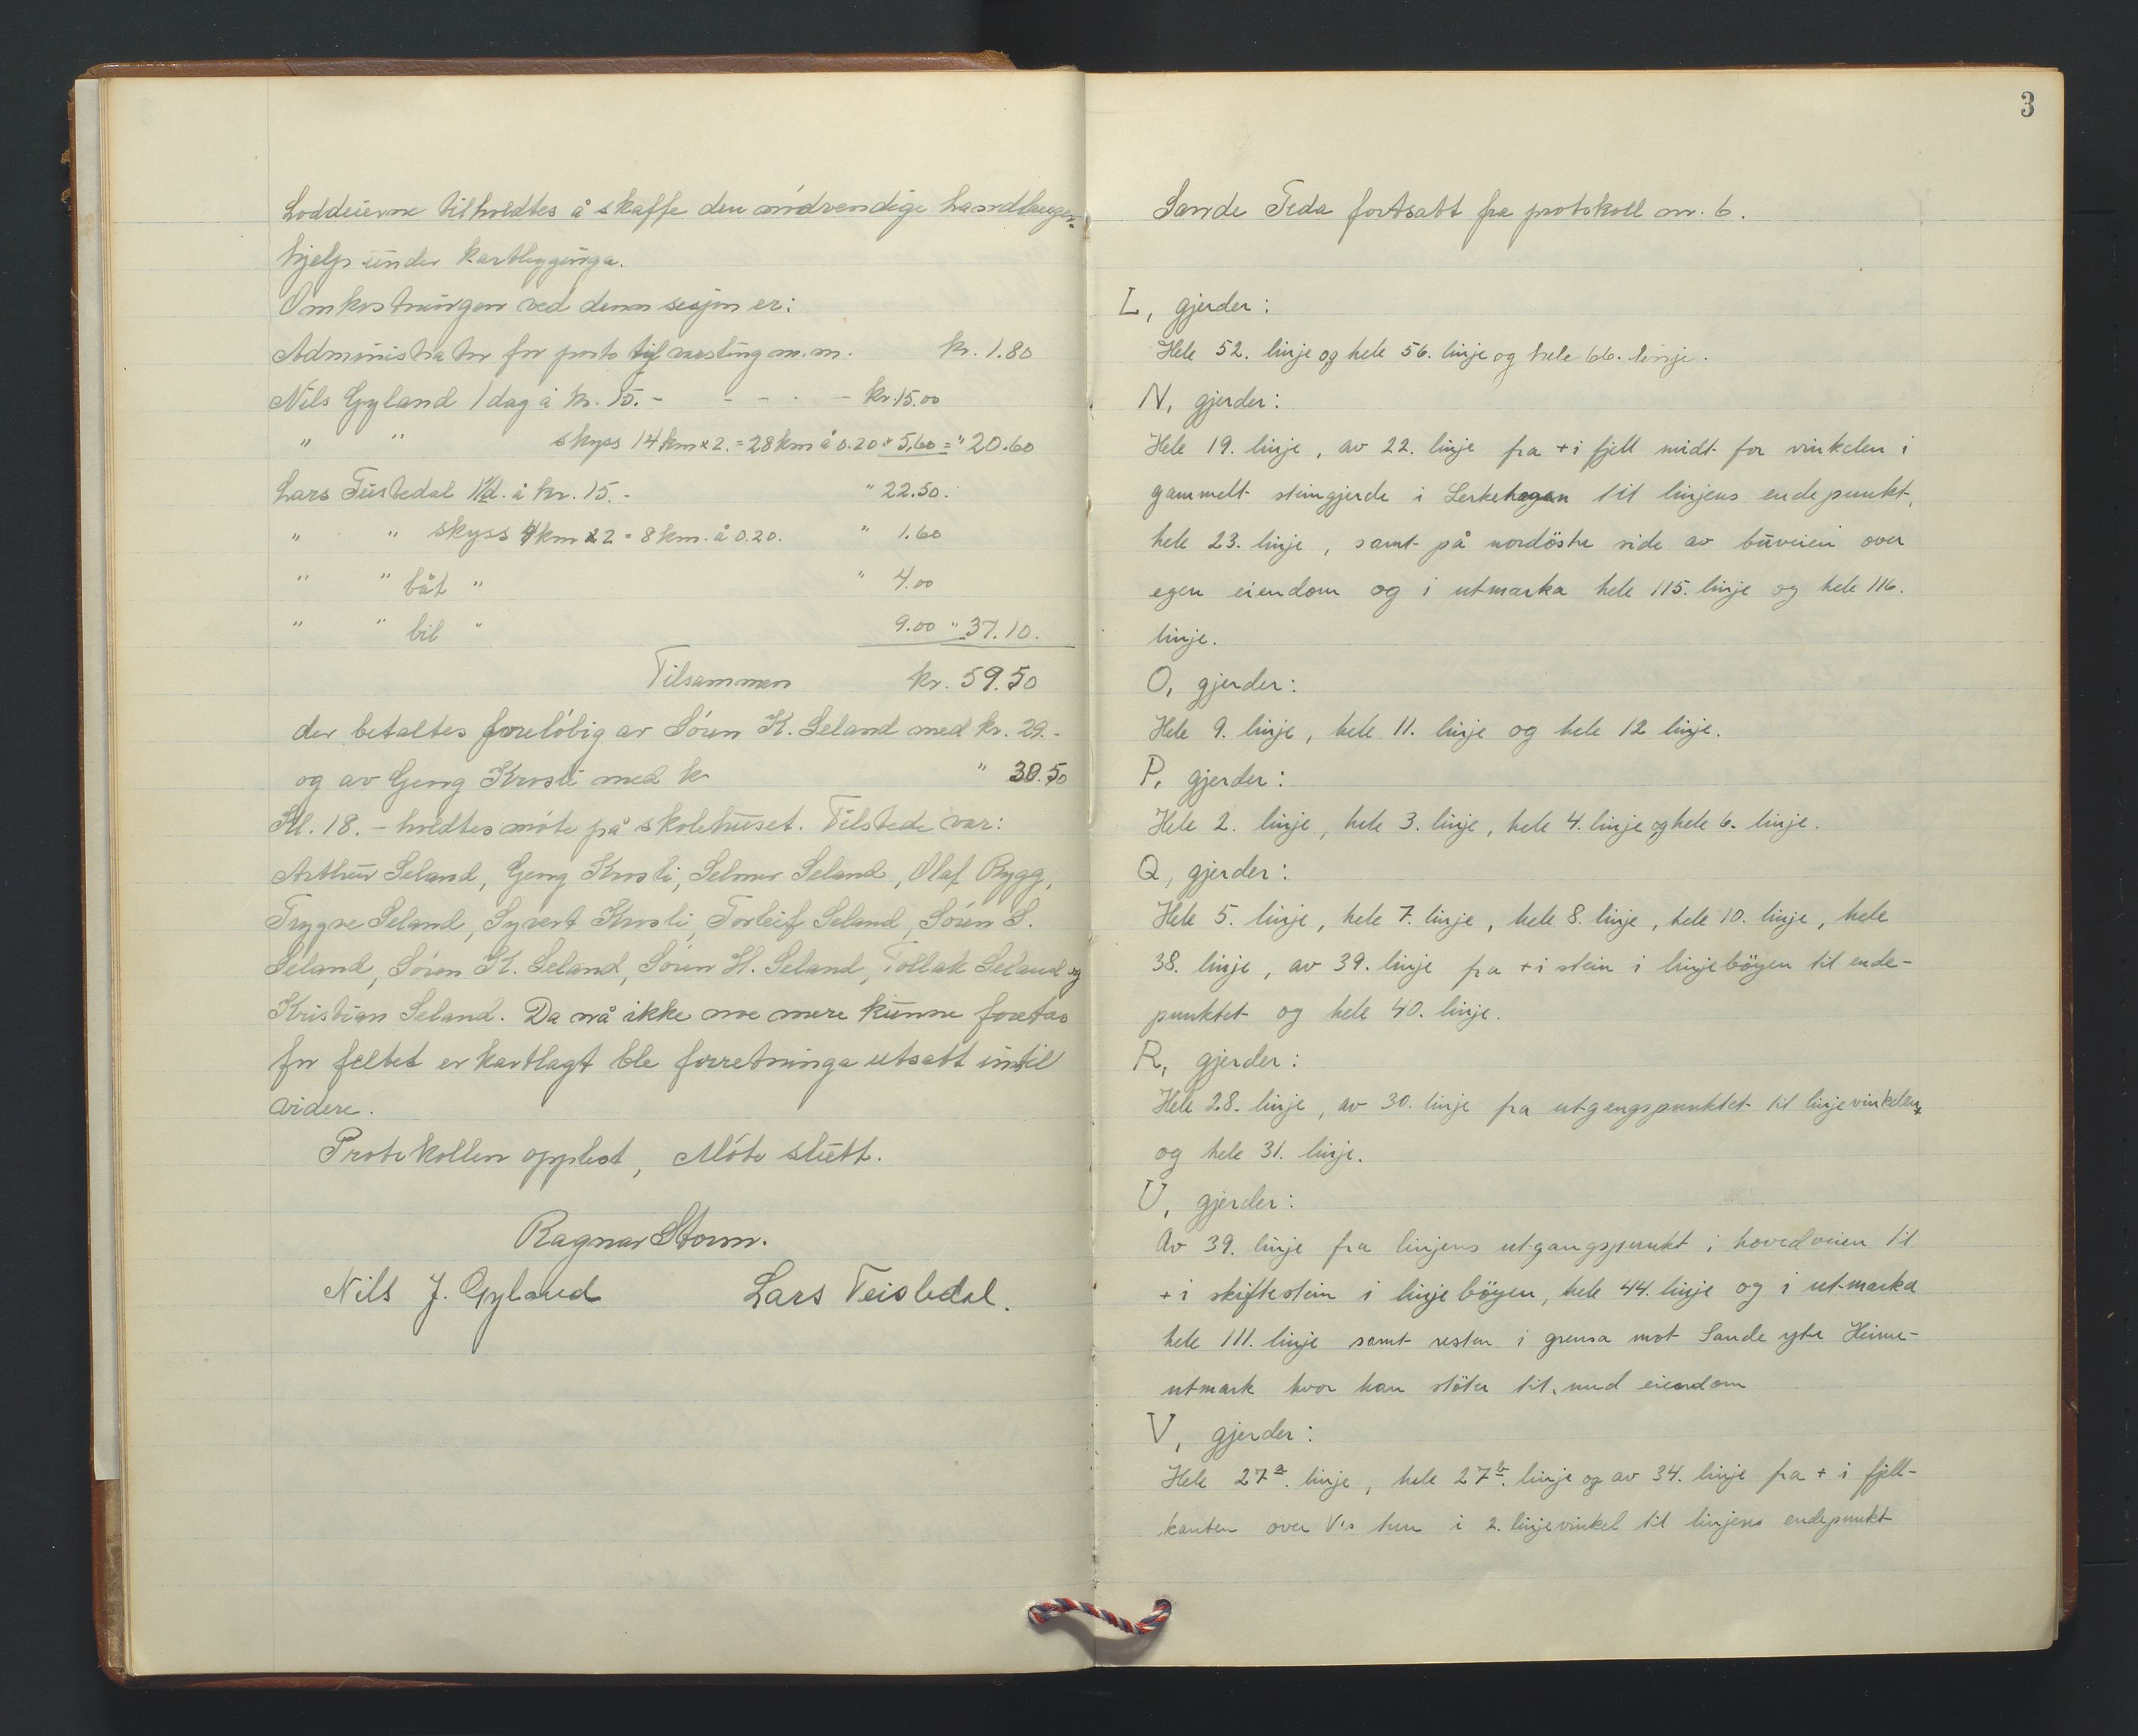 Loddeierne tilholdtes å skaffe den nödvendige handlanger-
hjelp under kartlegginga.
Omkostningen ved denn sesjon er:
Administrator for porto til varsling m.m. kr. 1.80
Nils Gyland 1 dag á kr. 15.- - - - - kr. 15.00
" " skyss 14 km x 2. = 28 km á 0.20 " 5,60 = " 20.60
Lars Teistedal 1½d. á kr. 15.- " 22.50.
" " skyss 4 km x 2 = 8 km. á 0.20. " 1.60
" " båt " " 4.00
" " bil " 9.00 " 37.10.
Tilsammen kr. 59.50
der betaltes foreløbig av Sóren K. Seland med kr. 29.-
og av Georg Krosli med k. " 30.50
Kl. 18. - holdtes móte på skolehuset. Tilstede var:
Arthur Seland, Georg Krosli, Selmer Seland, Olaf Rygg,
Trygve Seland, Syvert Krosli, Torleif Seland, Sóren S.
Seland, Sóren K. Seland, Sóren H. Seland, Tollak Seland og
Kristian Seland. Da nå ikke noe mere kunne foretas
fór feltet er kartlagt ble forretninga utsatt inntil
videre.
Protokollen opplest, Móte slutt.
Ragnar Storm.
Nils J. Gyland Lars Teistedal.
3
Sande Feda fortsatt fra protokoll nr. 6.
L, gjerder:
Hele 52. linje og hele 56. linje og hele 66. linje.
N, gjerder:
Hele 19. linje, av 22. linje fra + i fjell midt for vinkelen i
gammelt steingjerde i Lerkehagen til linjens endepunkt,
hele 23. linje, samt på nordöstre side av buveien over
egen eiendom og i utmarka hele 115. linje og hele 116.
linje.
O, gjerder:
Hele 9. linje, hele 11. linje og hele 12 linje.
P, gjerder:
Hele 2. linje, hele 3. linje, hele 4. linje og hele 6. linje.
Q, gjerder:
Hele 5. linje, hele 7. linje, hele 8. linje, hele 10. linje, hele
38. linje, av 39. linje fra + i stein i linjeböyen til ende-
punktet og hele 40. linje.
R, gjerder:
Hele 28. linje, av 30. linje fra utgangspunktet til linjevinkelen,
og hele 31. linje.
U, gjerder:
Av 39. linje fra linjens utgangspunkt i hovedveien til
+ i skiftestein i linjeböyen, hele 44. linje og i utmarka
hele 111. linje samt resten i grensa mot Sande ytre Heime-
utmark hvor han stöter til med eiendom
V, gjerder:
Hele 27a. linje, hele 27b. linje og av 34. linje fra + i fjell-
kanten over V's hus i 2. linjevinkel til linjens endepunkt